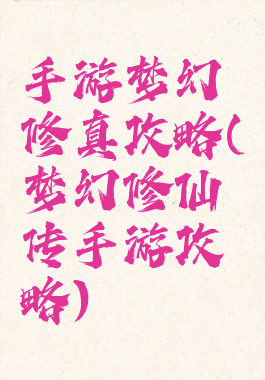 手游梦幻
修真攻略(
梦幻修仙
传手游攻
略)